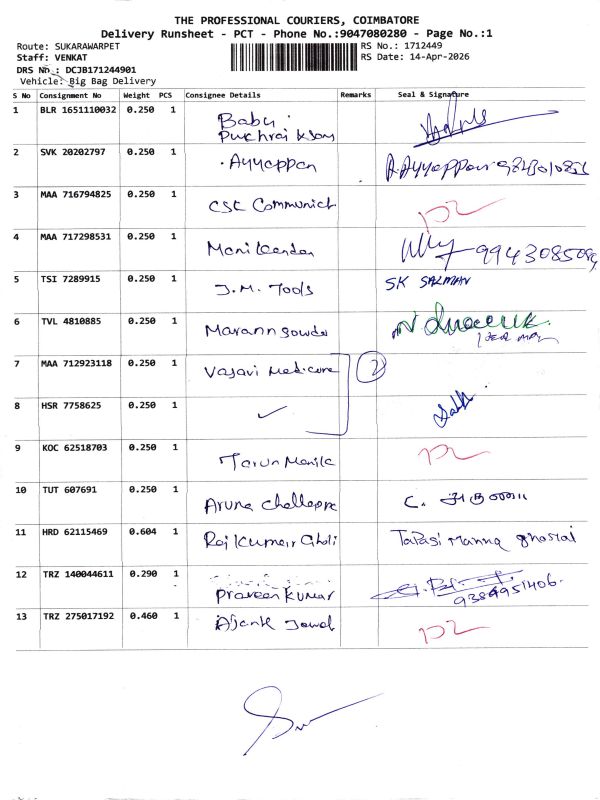 THE PROFESSIONAL COURIERS, COIMBATORE
Delivery Runsheet - PCT - Phone No.:9047080280 - Page No.:1
Route: SUKARAWARPET
RS No.: 1712449
Staff: VENKAT
RS Date: 14-Apr-2026
DRS No.: DCJB171244901
Vehicle: Big Bag Delivery
S No Consignment No Weight PCS Consignee Details Remarks Seal & Signature
1 BLR 1651110032 0.250 1 Babu
Pukhraj
2 SVK 20202797 0.250 1 Ayyappan A.Ayyappan
3 MAA 716794825 0.250 1 CSC Communicat
4 MAA 717298531 0.250 1 Manikandan
5 TSI 7289915 0.250 1 J.M. Tools SK SALMAN
6 TVL 4810885 0.250 1
7 MAA 712923118 0.250 1 Vasavi Medicare 2
8 HSR 7758625 0.250 1 ✓
9 KOC 62518703 0.250 1 Tarun
10 TUT 607691 0.250 1 Aruna C. அருணா
11 HRD 62115469 0.604 1 Rajkumar Tapasi Manna ghosal
12 TRZ 140044611 0.290 1 Praveen Kumar
9384951406.
13 TRZ 275017192 0.460 1